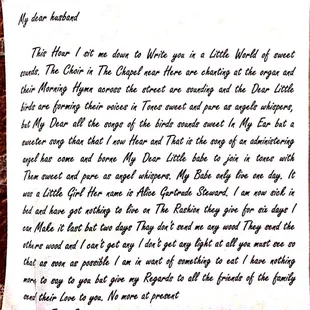 My dear husband
This Hour I sit me down to Write you in a Little World of sweet
sounds. The Choir in The Chapel near Here are chanting at the organ and
their Morning Hymn across the street are sounding and the Dear Little
birds are forming their voices in Tones sweet and pure as angels whispers,
but My Dear all the songs of the birds sounds sweet In My Ear but a
sweeter song than that I now Hear and That is the song of an administering
angel has come and borne My Dear Little babe to join in tones with
Them sweet and pure as angel whispers. My Babe only live one day. It
was a Little Girl Her name is Alice Gartrude Steward. I am now sick in
bed and have got nothing to live on The Rashion they give for six days I
can Make it last but two days Thay don't send me any wood They send the
others wood and I can't get any I don't get any light at all you must see so
that as soon as possible I am in want of something to eat I have nothing
more to say to you but give my Regards to all the friends of the family
send their Love to you. No more at present